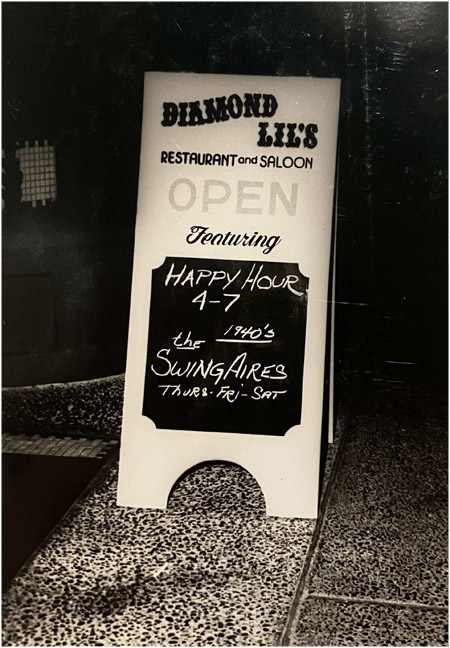 DIAMOND
LIL'S
RESTAURANT and SALOON
OPEN
Featuring
HAPPY HOUR
4-7
the 1940's
SWINGAIRES
THURS-FRI-SAT